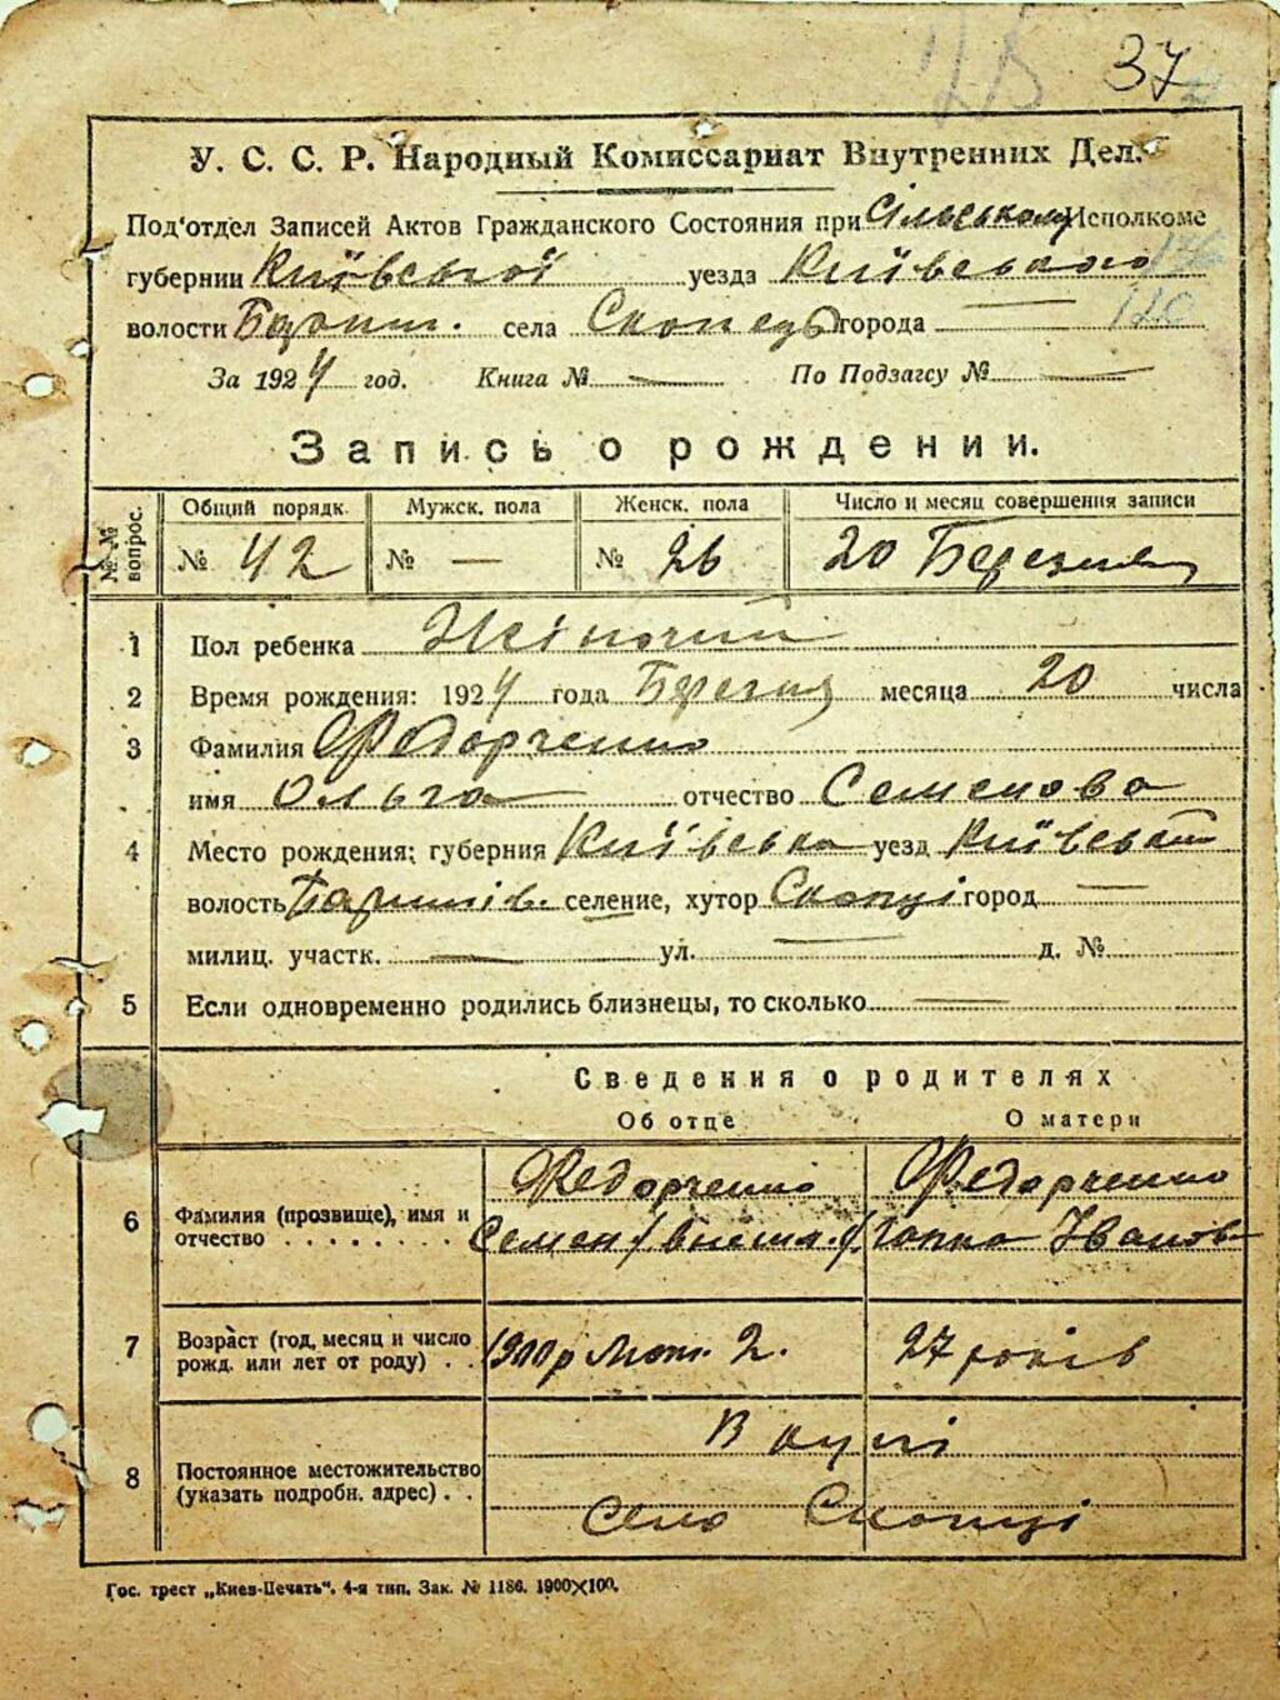 37
У. С. С. Р. Народный Комиссариат Внутренних Дел.
Под'отдел Записей Актов Гражданского Состояния при Сільському Исполкоме
губернии Київської уезда Київського
волости Бариш. села Скопець города — 120
За 1924 год. Книга № — По Подзагсу № —
Запись о рождении.
№№ вопрос. Общий порядк. Мужск. пола Женск. пола Число и месяц совершения записи
№ 42 № — № 26 20 Березня
1 Пол ребенка Жіночий
2 Время рождения: 1924 года Березня месяца 20 числа
3 Фамилия Федорченко
имя Ольга отчество Семенова
4 Место рождения: губерния Київська уезд Київський
волость Баришів. селение, хутор Скопці город —
милиц. участк. — ул. — д. №
5 Если одновременно родились близнецы, то сколько —
Сведения о родителях
Об отце О матери
Федорченко Федорченко
6 Фамилия (прозвище), имя и отчество Семен Ганна Іванов
7 Возраст (год, месяц и число рожд. или лет от роду) 1900 р Лют. 2. 27 років
В купі
8 Постоянное местожительство (указать подробн. адрес)
Село Скопці
Гос. трест „Киев-Печать". 4-я тип. Зак. № 1186. 1900×100.